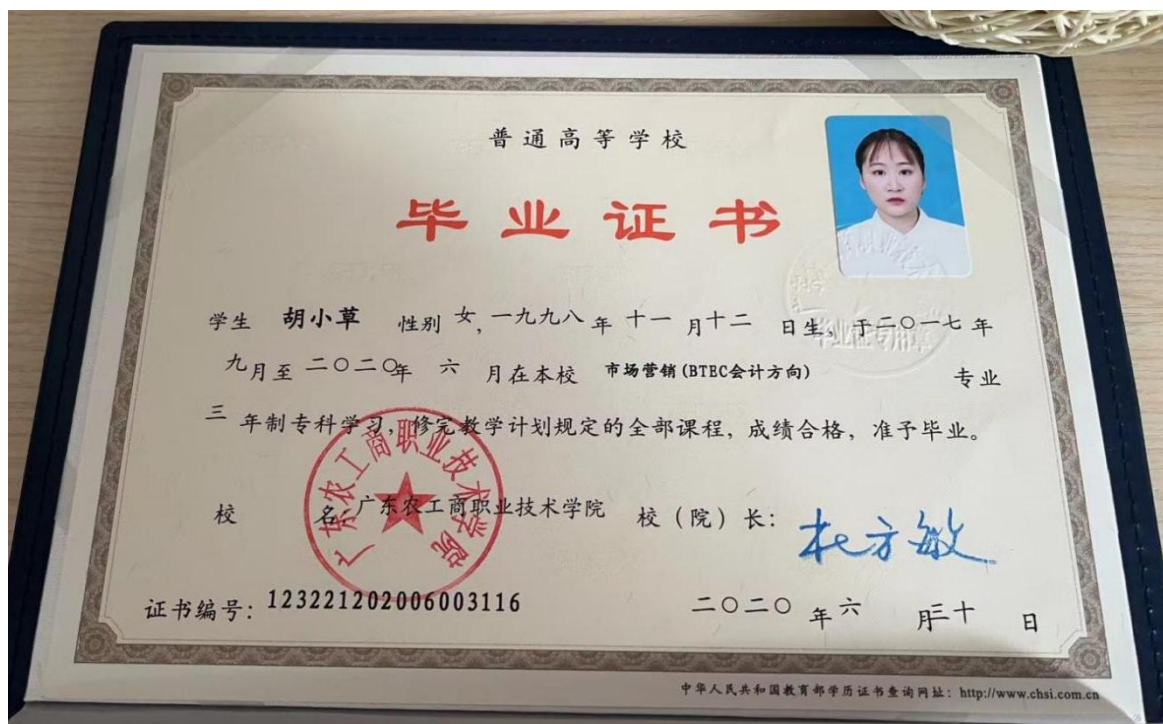 普通高等学校
毕业证书
学生 胡小草 性别 女, 一九九八 年 十一 月 十二 日生, 于二〇一七 年
九月至 二〇二〇年 六 月在本校 市场营销(BTEC会计方向) 专业
三 年制专科学习, 修完教学计划规定的全部课程, 成绩合格, 准予毕业。
广东农工商职业技术学院
校 名: 广东农工商职业技术学院 校（院）长: 杜方敏
证书编号: 123221202006003116 二〇二〇 年 六 月 三十 日
中华人民共和国教育部学历证书查询网址: http://www.chsi.com.cn
毕业证专用章